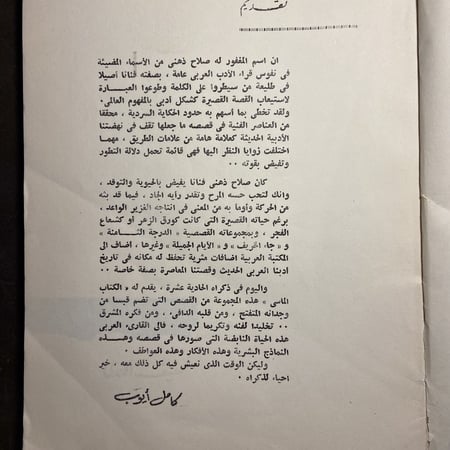 تقديم
ان اسم المغفور له صلاح ذهنى من الأسماء المضيئة
فى نفوس قراء الأدب العربى عامة ، بصفته فنانا أصيلا
فى طليعة من سيطروا على الكلمة وطوعوا العبارة
لاستيعاب القصة القصيرة كشكل أدبى بالمفهوم العالمى .
ولقد تخطى بما أسهم به حدود الحكاية السردية ، محققا
من العناصر الفنية فى قصصه ما جعلها تقف فى نهضتنا
الأدبية الحديثة كعلامة هامة من علامات الطريق ، مهما
اختلفت زوايا النظر اليها فهى قائمة تحمل دلالة التطور
وتفيض بقوته ٠٠
كان صلاح ذهنى فنانا يفيض بالحيوية والتوقد ،
وانك لتحب حسه المرح وتقدر رأيه الجاد ، فيما قد بثه
من الحركة وأوما به من المعنى فى انتاجه الغزير الواعد .
برغم حياته القصيرة التى كانت كورق الزهر أو كشعاع
الفجر ، وبمجموعاته القصصية « الدرجة الثامنة »
و « جاء الخريف » و « الأيام الجميلة » وغيرها ، أضاف الى
المكتبة العربية اضافات مثرية تحفظ له مكانه فى تاريخ
أدبنا العربى الحديث وقصتنا المعاصرة بصفة خاصة ٠٠
واليوم فى ذكراه الحادية عشرة ، يقدم له « الكتاب
الماسى » هذه المجموعة من القصص التى تضم قبسا من
وجدانه المتفتح ، ومن قلبه الدافىء . ومن فكره المشرق
٠٠ تخليدا لفنه وتكريما لروحه ، فال القارىء العربى
هذه الحياة النابضة التى صورها فى قصصه وهذه
النماذج البشرية وهذه الأفكار وهذه العواطف ٠
وليكن الوقت الذى نعيش فيه كل ذلك معه ، خير
احياء لذكراه ٠
كامل أيوب